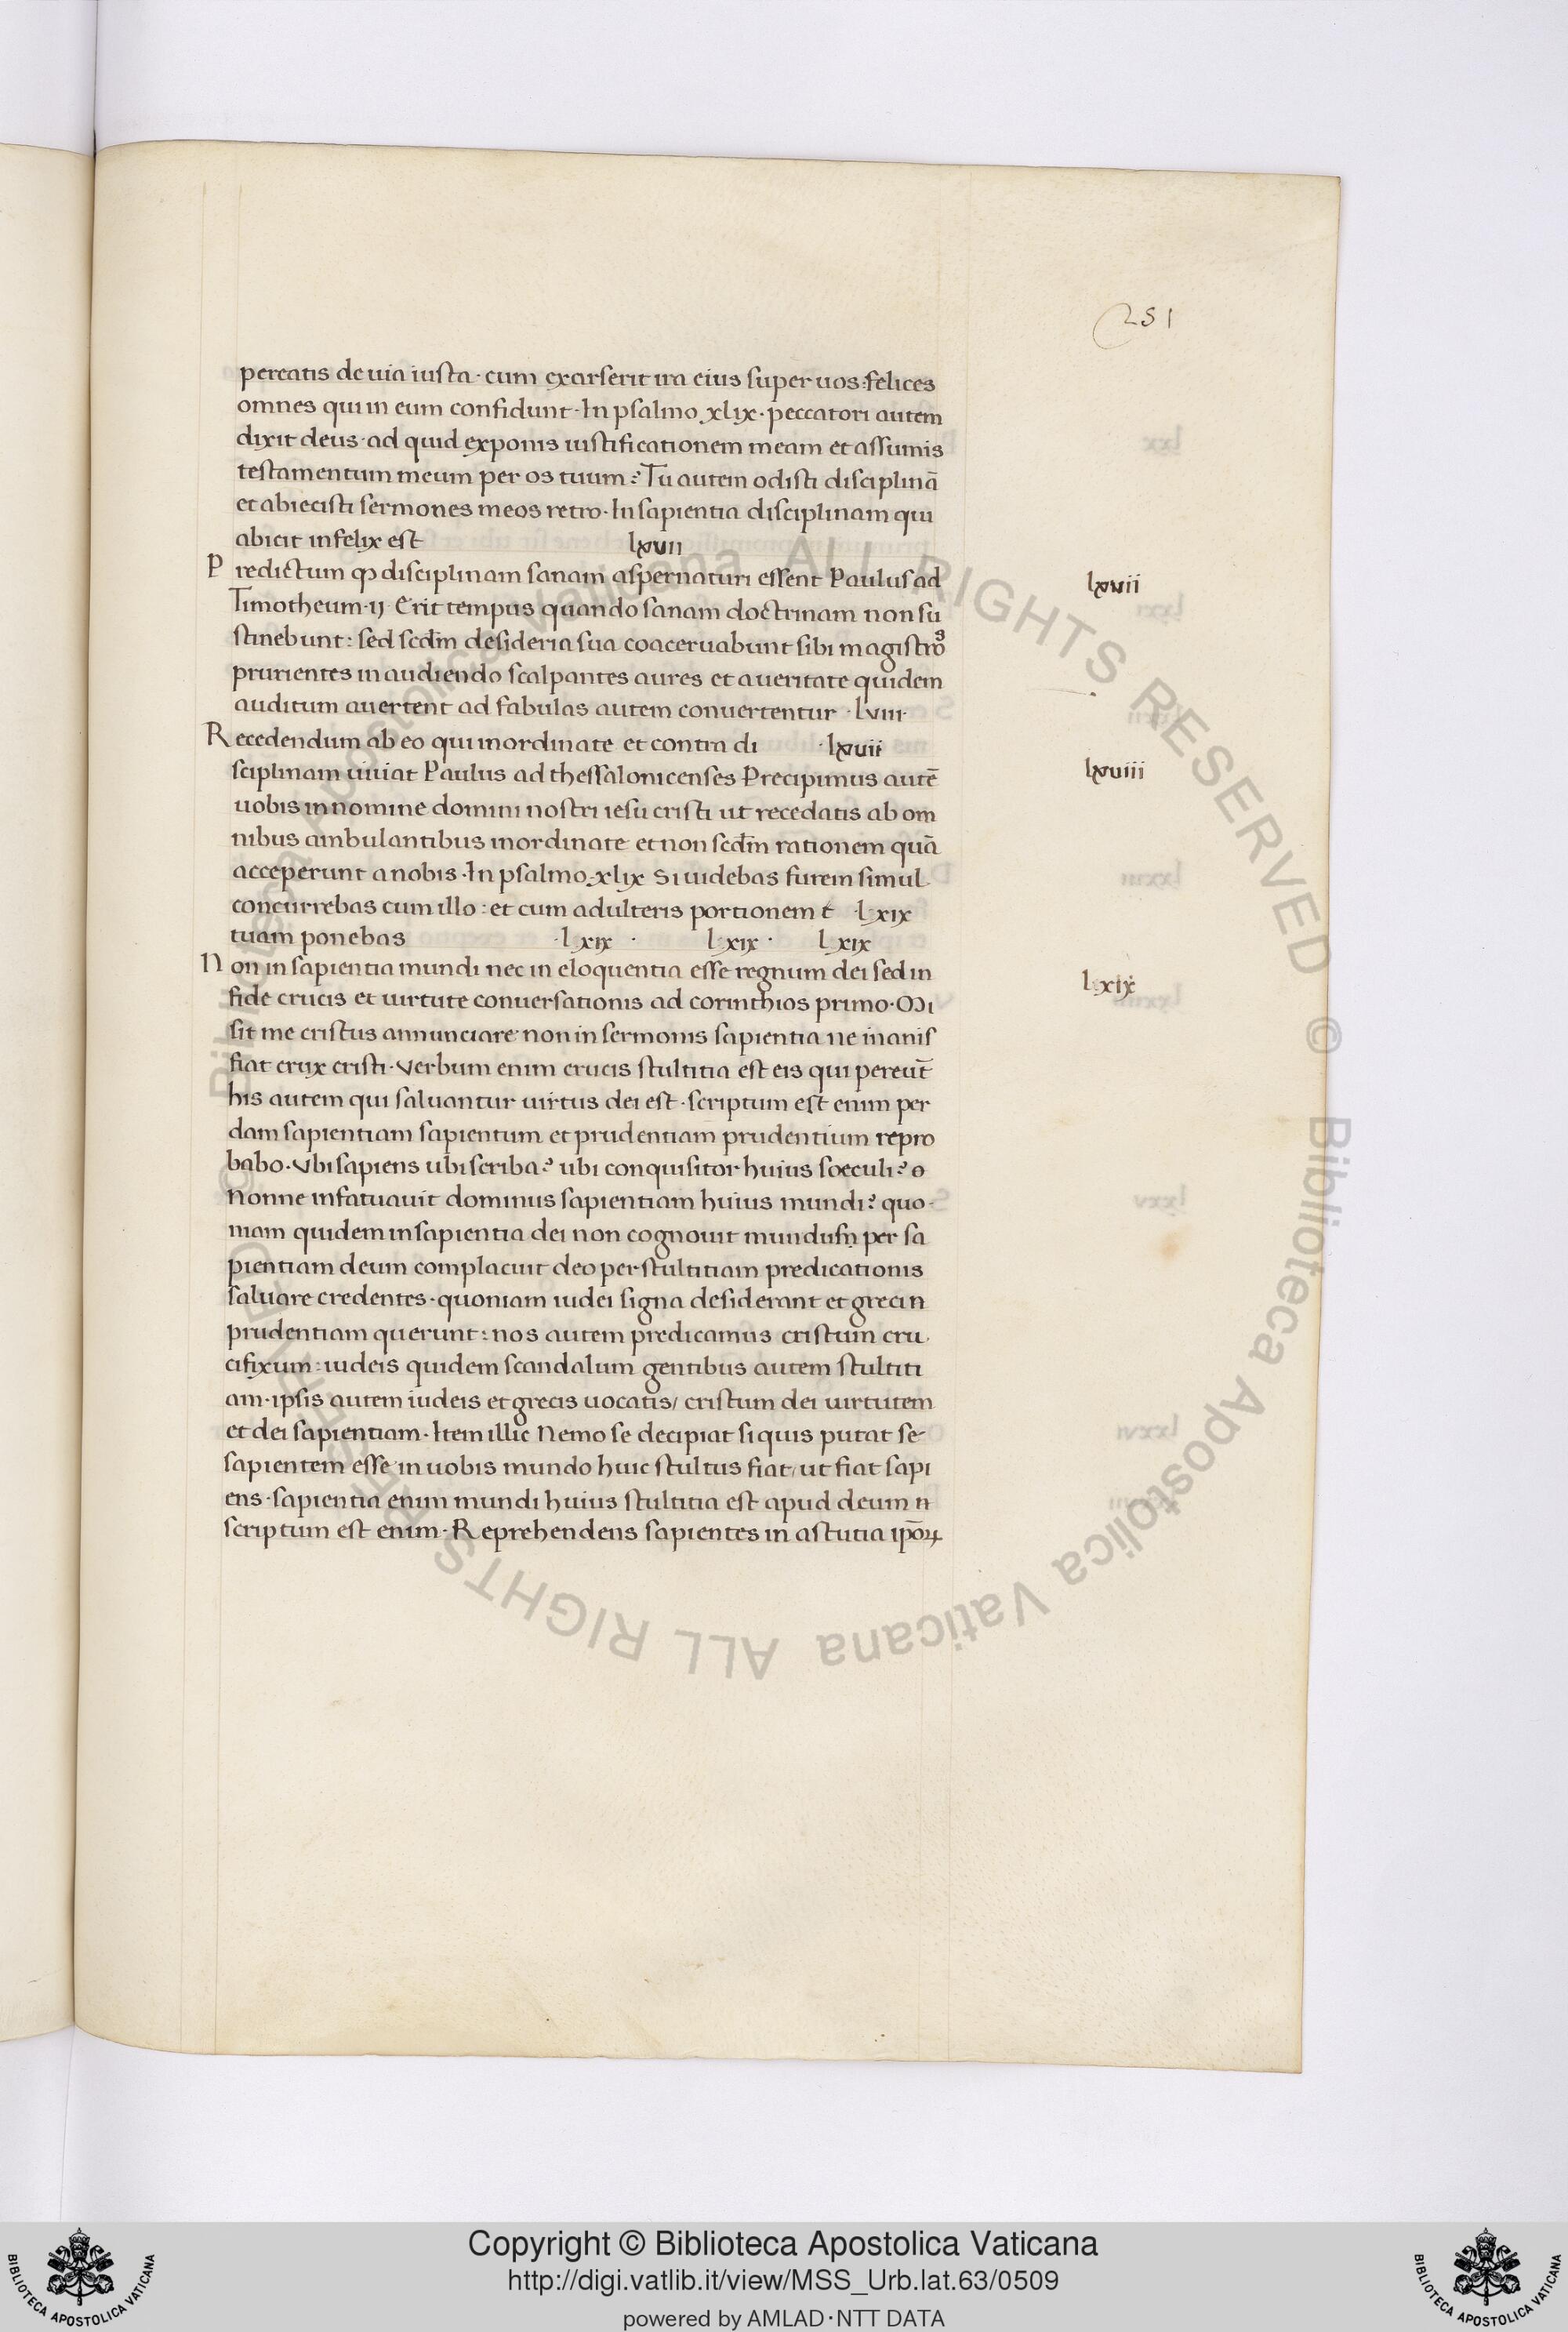 251
pereatis de uia iusta · cum exarserit ira eius super uos : felices
omnes qui in eum confidunt · In psalmo xlix · peccatori autem
dixit deus · ad quid exponis iustificationem meam et assumis
testamentum meum per os tuum ? Tu autem odisti disciplinā
et abiecisti sermones meos retro · In sapientia disciplinam qui
abicit infelix est lxvii
Predictum ꝙ disciplinam sanam aspernaturi essent Paulus ad
lxvii
Timotheum · ij · Erit tempus quando sanam doctrinam non su
stinebunt : sed scdm̄ desideria sua coaceruabunt sibi magistros
prurientes in audiendo scalpantes aures et a ueritate quidem
auditum auertent ad fabulas autem conuertentur · lviii ·
Recedendum ab eo qui inordinate et contra di · lxvii
sciplinam uiuat Paulus ad thessalonicenses Precipimus autē
lxviii
uobis in nomine domini nostri iesu cristi ut recedatis ab om
nibus ambulantibus inordinate et non scdm̄ rationem quā
acceperunt a nobis · In psalmo · xlix Si uidebas furem simul
concurrebas cum illo : et cum adulteris portionem t lxix
tuam ponebas · lxix · lxix · lxix
Non in sapientia mundi nec in eloquentia esse regnum dei sed in
lxix
fide crucis et uirtute conuersationis ad corinthios primo · Mi
sit me cristus annunciare non in sermonis sapientia ne inanis
fiat crux cristi · Verbum enim crucis stultitia est eis qui pereūt
his autem qui saluantur uirtus dei est · scriptum est enim per
dam sapientiam sapientum et prudentiam prudentium repro
babo · Vbi sapiens ubi scriba ? ubi conquisitor huius soeculi ? o
Nonne infatuauit dominus sapientiam huius mundi ? quo
niam quidem in sapientia dei non cognouit mundus per sa
pientiam deum complacuit deo per stultitiam predicationis
saluare credentes · quoniam iudei signa desiderant et greci n
prudentiam querunt : nos autem predicamus cristum cru
cifixum : iudeis quidem scandalum gentibus autem stultiti
am · ipsis autem iudeis et grecis uocatis / cristum dei uirtutem
et dei sapientiam · Item illic Nemo se decipiat si quis putat se
sapientem esse in uobis mundo huic stultus fiat / ut fiat sapi
ens · sapientia enim mundi huius stultitia est apud deum n
scriptum est enim · Reprehendens sapientes in astutia ipōꝝ
© Biblioteca Apostolica Vaticana ALL RIGHTS RESERVED © Biblioteca Apostolica Vaticana ALL RIGHTS RESERVED
BIBLIOTECA APOSTOLICA VATICANA
Copyright © Biblioteca Apostolica Vaticana
http://digi.vatlib.it/view/MSS_Urb.lat.63/0509
powered by AMLAD·NTT DATA
BIBLIOTECA APOSTOLICA VATICANA